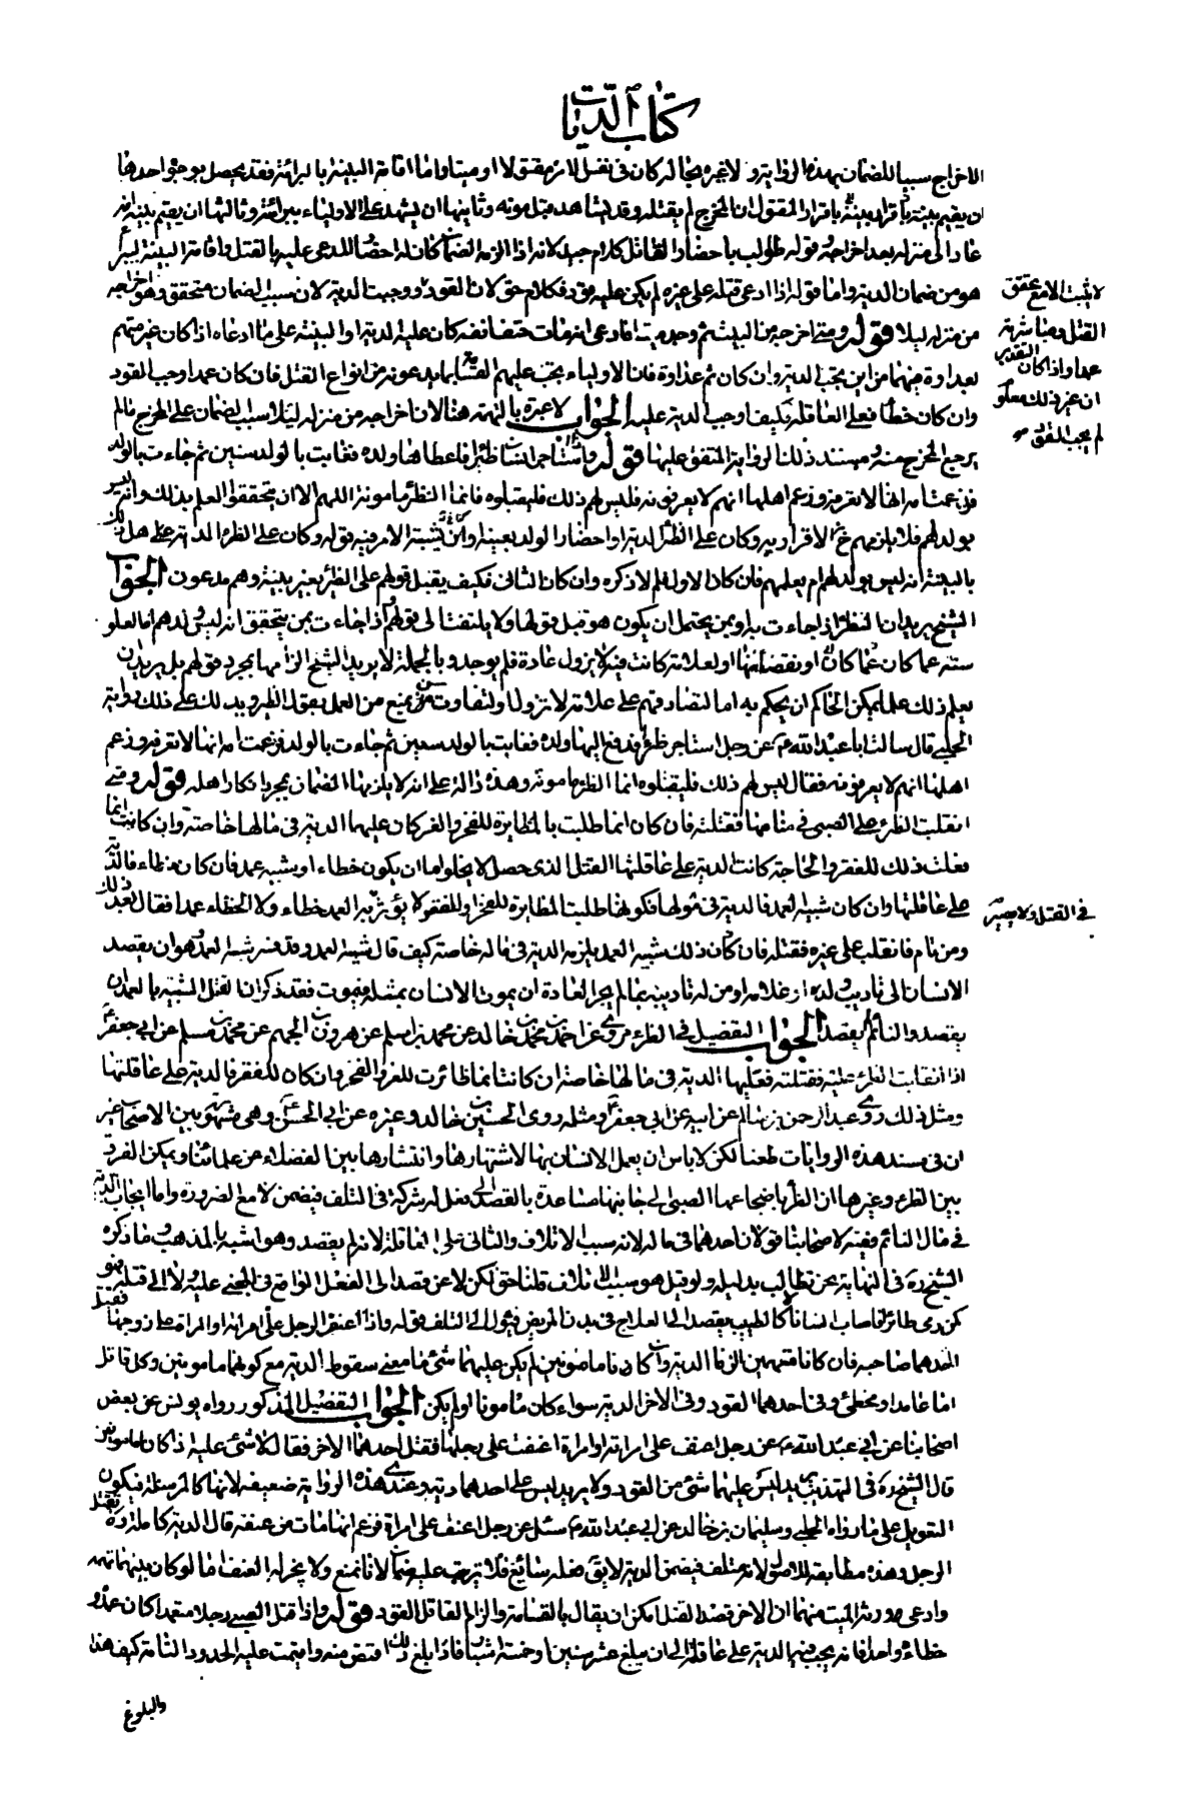 كتاب الديات
الاخراج سببا للضمان بهذه الرواية ولا غيره بحاله كان في نفس الامر مقتولا او ميتا واما اقامة البينة بالبرائة فقد يحصل بوجوه احدها
ان يقيم بينة باقرار المقتول ان المخرج لم يقتله وقد يشاهد قبل موته وثانيها ان يشهد على الاولياء ببرائته وثالثها ان يقيم بينة انه
عاد الى منزله بعد اخراجه قوله طولب باحضار القاتل كلام جيد لانه اذا الزمه الضمان كان له احضار المدعى عليه بالقتل واقامة البينة ليبرأ
هو من ضمان الدية واما قوله اذا ادعى قتله على غيره لم يكن عليه قود فكلام حق لان القود ووجبت الدية لان سبب الضمان متحقق وهو اخراجه
من منزله ليلا قوله ومتى اخرجه من البيت ثم وجد ميتا فادعى انه مات حتف انفه كان عليه الدية او البينة على ما ادعاه اذا كان غير متهم
بعداوة بينهما من اين يجب الدية وان كان ثم عداوة فان الاولياء يجب عليهم القسامة بما يدعونه من انواع القتل فان كان عمدا وجب القود
وان كان خطأ فعلى العاقلة فكيف اوجب الدية عليه الجواب لا عبرة بالتهمة هنا لان اخراجه من منزله ليلا سبب الضمان على المخرج ما لم
يرجع المخرج منه ومستند ذلك الرواية المتفق عليها قوله ومن استأجر انسان ظئرا فاعطاها ولده فغابت بالولد سنين ثم جاءت بالولد
فزعمت امه انها لا تعرفه وزعم اهلها انهم لا يعرفونه فليس لهم ذلك فليقبلوه فانما الظئر مامونة اللهم الا ان يتحققوا العلم بذلك وانه ليس
بولد لهم فلا يلزمهم ح الاقرار به وكان على الظئر الدية او احضار الولد بعينه او من يشتبه الامر فيه قوله وكان على الظئر الدية على هل ذلك
بالبينة انه ليس بولد لهم ام بعلمهم فان كان الاول فلم لا ذكره وان كان الثاني فكيف يقبل قولهم على الظئر بغير بينة وهم مدعون الجواب
الشيخ يريد ان الظئر اذا جاءت به او بمن يحتمل ان يكون هو قبل قولها ولا يلتفت الى قولهم اذا جاءت بمن يتحقق انه ليس ولدهم اما لعلو
سنه عما كان عما كان او نقصانها او لعلامة كانت فيه لا يزول عادة فلم يوجد وبالجملة لا يريد الشيخ الزامها بمجرد قولهم بل يريد ان
يعلم ذلك علما يمكن الحاكم ان يحكم به اما لتصادقهم على علامة لا تزول او لتفاوت سن يمنع من العمل بقول الظئر ويدلك على ذلك رواية
الحلبي قال سالت ابا عبد الله ع عن رجل استاجر ظئرا فدفع اليها ولده فغابت بالولد سنين ثم جاءت بالولد فزعمت امه انها لا تعرفه وزعم
اهلها انهم لا يعرفونه فقال ليس لهم ذلك فليقبلوه انما الظئر مامونة وهذه دالة على انه لا يلزمها الضمان بمجرد انكار اهله قوله ومتى
انقلبت الظئر على الصبي في منامها فقتلته فان كان انما طلبت بالمظايرة للفخر والعز كان عليها الدية في مالها خاصة وان كانت انما
فعلت ذلك للفقر والحاجة كانت الدية على عاقلتها القتل الذي حصل لا يخلو اما ان يكون خطاء او شبيه عمد فان كان خطاء فالدية
على عاقلتها وان كان شبيه العمد فالدية في مالها فكونها طلبت المظايرة للفخر او للفقر لا يؤثر شبه العمد خطاء ولا الخطاء عمدا فقال بعد ذلك
ومن نام فانقلب على غيره فقتله فان كان ذلك شبيه العمد يلزمه الدية في ماله خاصة كيف قال شبيه العمد وقد فسر شبيه العمد هو ان يقصد
الانسان الى تاديب ولده او غلامه او من له تاديبه بما لم يجر العادة ان يموت الانسان بمثله فيموت فقد ذكر ان القتل الشبيه بالعمد ان
يقصد والنائم لم يقصد الجواب التفصيل في الظئر مروي عن احمد بن محمد بن خالد عن محمد بن اسلم عن هرون بن الجهم عن محمد بن مسلم عن ابي جعفر ع
اذا انقلبت الظئر عليه فقتلته فعليها الدية في مالها خاصة ان كانت انما ظائرت للعز والفخر وان كان للفقر فالدية على عاقلتها
ومثل ذلك روى عبد الرحمن بن سالم عن ابيه عن ابي جعفر ع ومثله روى الحسين بن خالد وغيره عن ابي الحسن ع وهي مشهورة بين الاصحاب غير
ان في سند هذه الروايات طعنا لكن لا باس ان يعمل الانسان بها لاشتهارها وانتشارها بين الفضلاء من علمائنا ويمكن الفرق
بين الظئر وغيرها ان الظئر باضجاعها الصبي الى جانبها مساعدة بالقصد الى فعل له شركة في التلف فيضمن لا مع الضرورة واما ايجاب الدية
في مال النائم ففيه لاصحابنا قولان احدهما في ماله لانه سبب الاتلاف والثاني على العاقلة لانه لم يقصد وهو اشبه بالمذهب وما ذكره
الشيخ ره في النهاية نحن نطالب بدليله ولو قيل هو سبب الاتلاف قلنا حق لكن لا عن قصد الى الفعل الواقع في المجني عليه ولا الى قتله فهو
كمن رمى طائرا فاصاب انسانا لا كالطبيب يقصد الى العلاج في بدن المريض فيؤل الى التلف قوله واذا اعنف الرجل على امراته او المراة على زوجها فقتل
احدهما صاحبه فان كانا متهمين الزما الدية وان كانا مامونين لم يكن عليهما شئ ما معنى سقوط الدية مع كونهما مامونين وكل قاتل
اما عامد او مخطئ وفي احدهما القود وفي الاخر الدية سواء كان مامونا او لم يكن الجواب التفصيل المذكور رواه يونس عن بعض
اصحابنا عن ابي عبد الله ع عن رجل اعنف على امراته او امراة اعنفت على رجلها فقتل احدهما الاخر فقال لا شئ عليه اذ كانا مامونين
قال الشيخ ره في التهذيب يريد ليس عليهما شئ من القود ولا يريد ليس على احدهما دية وعندي هذه الرواية ضعيفة لانها كالمرسلة فيكون
التعويل على ما رواه الحلبي وسليمان بن خالد عن ابي عبد الله ع سئل عن رجل اعنف على امراة فزعم انها ماتت من عنفه قال الدية كاملة ولا يقتل
الرجل وهذه مطابقة للاصول لانه متلف فيضمن الدية لا يق فعله سائغ فلا يترتب عليه ضمان لانا نمنع ولا يجز له العنف اما لو كان بينهما تهمة
وادعى ورثة الميت منهما ان الاخر قصد القتل امكن ان يقال بالقسامة والزام القاتل القود قوله واذا قتل الصبي رجلا متعمدا كان عمده
خطاؤه واحدا فانه يجب فيهما الدية على عاقلته الى ان يبلغ عشر سنين او خمسة اشبار فاذا بلغ ذلك اقتص منه واقيمت عليه الحدود التامة كيف هذا
والبلوغ
لا يثبت الا مع تحقق
القتل ومباشرته
عمدا واذا كان التقدير
ان غير ذلك معلوم
لم يجب القود صح
في القتل ولا يصير